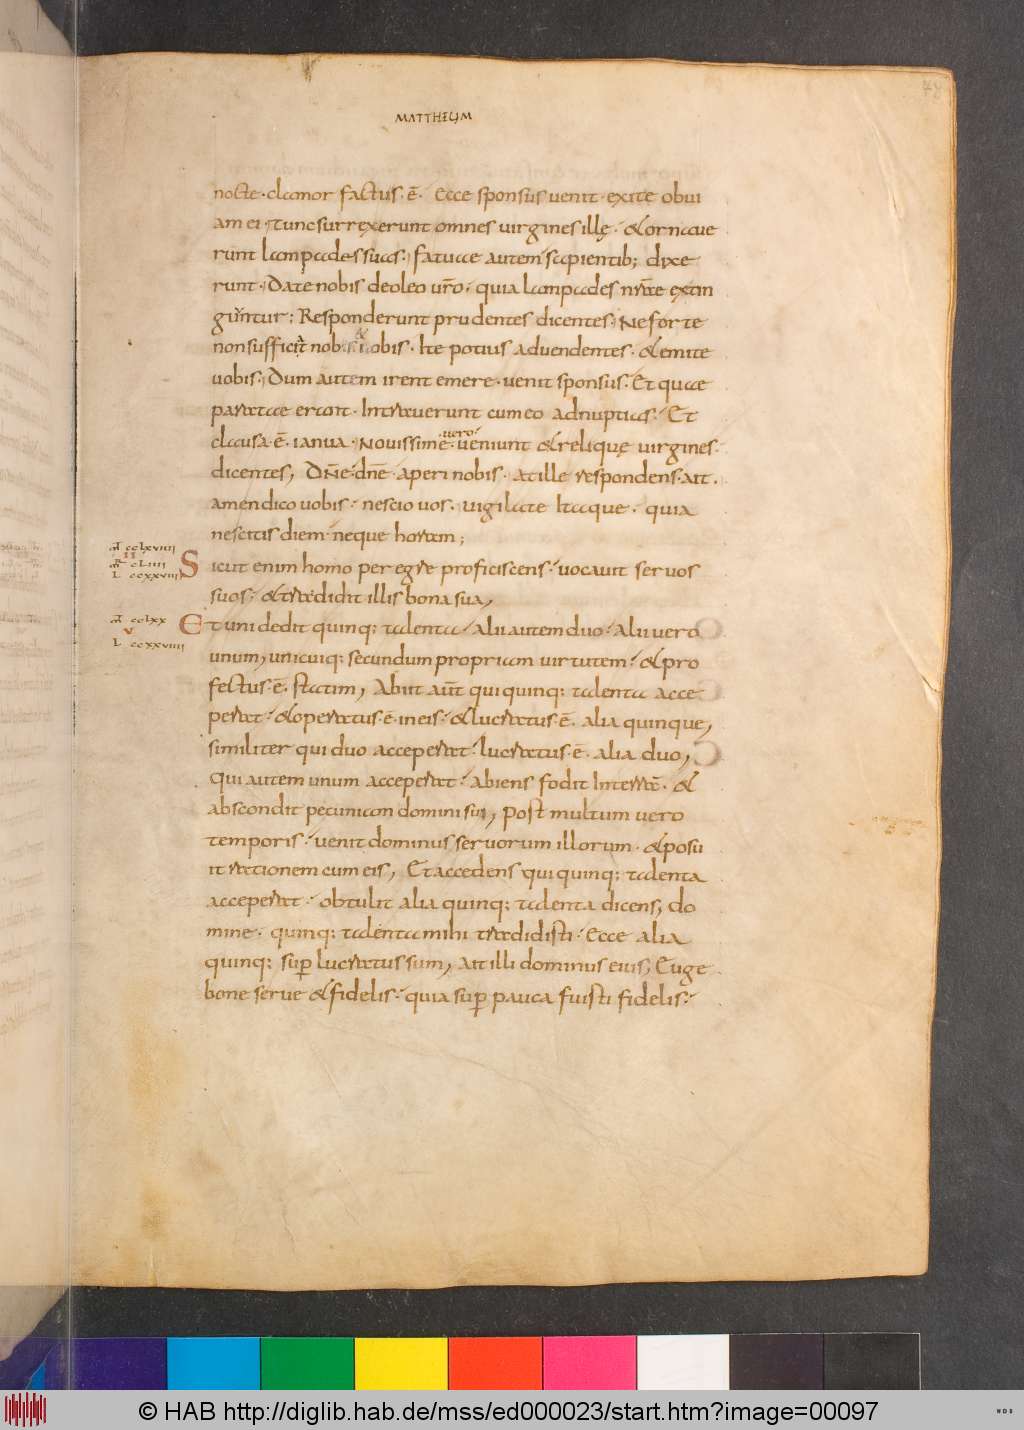 78
MATTHEUM
nocte · clamor factus · ē · Ecce sponsus venit · exite obui
am ei · Tunc surrexerunt omnes virgines illę · & ornaue
runt lampades suas · fatuae autem sapientib; dixe
runt · Date nobis de oleo urō · quia lampades nrāe extin
guntur : Responderunt prudentes dicentes · Ne forte
non sufficiat nobis & uobis · Ite potius ad uendentes · & emite
uobis · Dum autem irent emere · uenit sponsus · Et quae
paratae erant · Intrauerunt cum eo ad nuptias · Et
clausa · ē · ianua · Novissime vero ueniunt & relique virgines ·
dicentes, Dn̄e · dn̄e · aperi nobis · at ille respondens · ait ·
amen dico uobis · nescio uos · uigilate Itaque · quia
nescitis diem neque horam ;
m̄ cclxviiii
ii
R̄ cliiii
L ccxxviii
Sicut enim homo peregre proficiscens · uocauit seruos
suos · & tradidit illis bona sua,
m̄ cclxx
v
L ccxxviiii
Et uni dedit quinq; talenta · alii autem duo · alii vero
unum, unicuiq; secundum propriam virtutem · & pro
fectus · ē · statim, Abiit aūt qui quinq; talenta acce
perat · & operatus · ē · in eis · & lucratus · ē · alia quinque,
similiter qui duo acceperat · lucratus · ē · alia duo,
Qui autem unum acceperat · abiens fodit In terrā · &
abscondit pecuniam domini sui, Post multum vero
temporis · uenit dominus seruorum illorum · & posu
it rationem cum eis, Et accedens qui quinq; talenta
acceperat · obtulit alia quinq; talenta dicens, do
mine · quinq; talenta mihi tradidisti · Ecce alia
quinq; sup̄ lucratus sum, Ait illi dominus eius, Euge
bone serue & fidelis · quia sup̄ pauca fuisti fidelis ·
© HAB http://diglib.hab.de/mss/ed000023/start.htm?image=00097
WDB